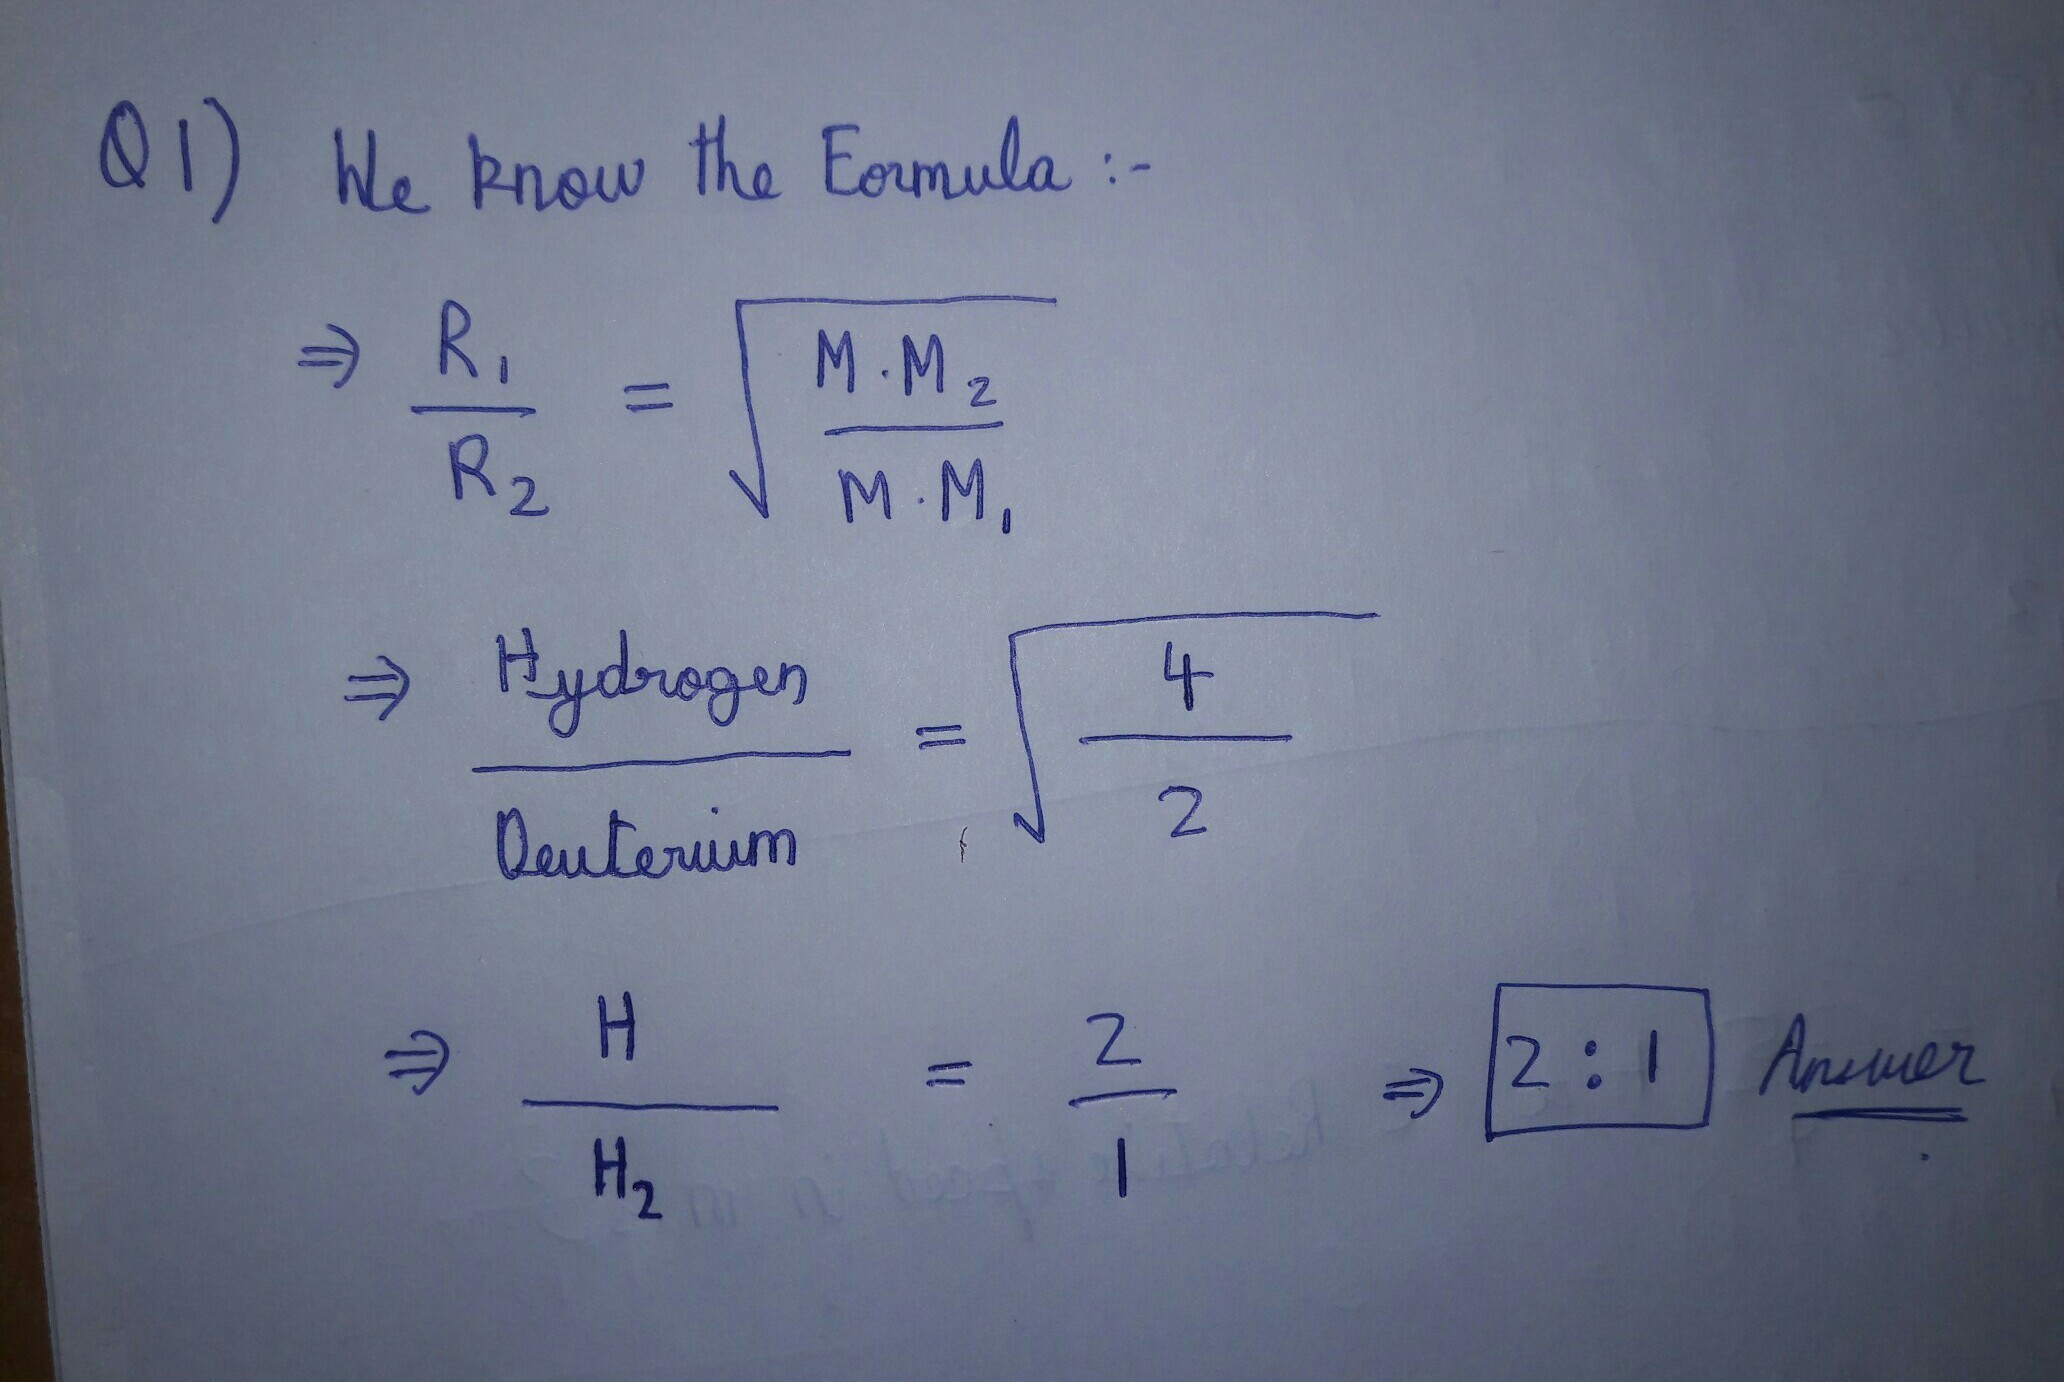 Q1) We know the Formula :-
⇒ R₁ / R₂ = √(M.M₂ / M.M₁)
⇒ Hydrogen / Deuterium = √(4 / 2)
⇒ H / H₂ = 2 / 1 ⇒ 2 : 1 Answer